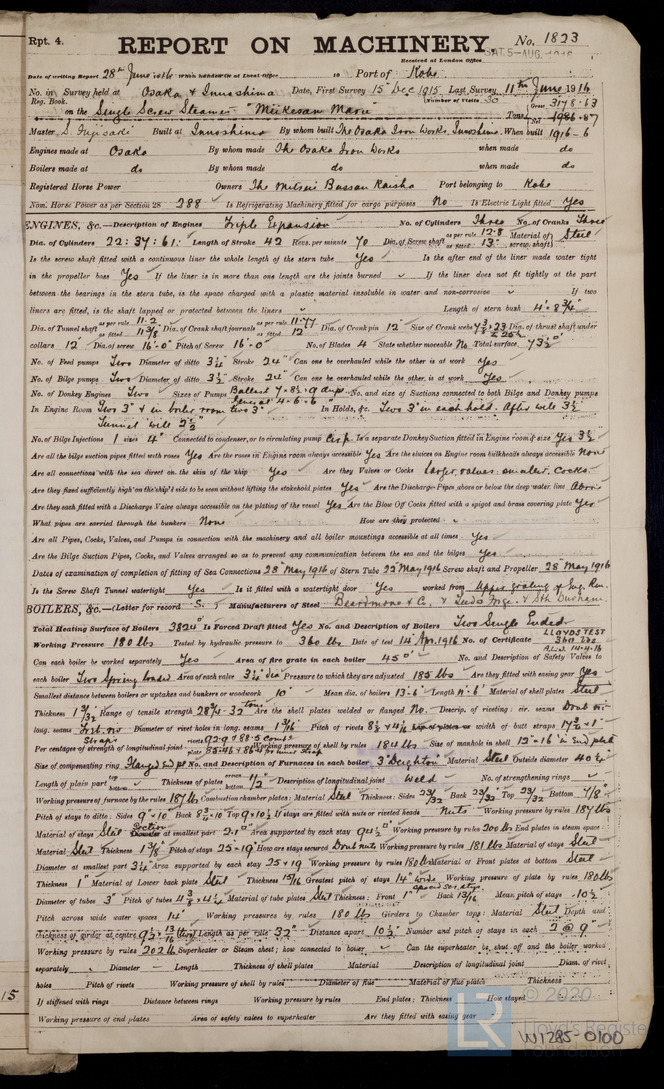 Rpt. 4.
REPORT ON MACHINERY. No. 1823
Received at London Office SAT. 5-AUG. 1916
Date of writing Report 28th June 1916 When handed in at Local Office 10 Port of Kobe
No. in Survey held at Osaka & Innoshima Date, First Survey 15 Dec 1915 Last Survey 11th June 1916
Reg. Book. (Number of Visits 30
on the Single Screw Steamer "Miikesan Maru" Tons Gross 3178.63 Net 1986.87
Master S. Fujisaki Built at Innoshima By whom built The Osaka Iron Works, Innoshima. When built 1916-6
Engines made at Osaka By whom made The Osaka Iron Works when made do
Boilers made at do By whom made do when made do
Registered Horse Power Owners The Mitsui Bussan Kaisha Port belonging to Kobe
Nom. Horse Power as per Section 28 288 Is Refrigerating Machinery fitted for cargo purposes No Is Electric Light fitted Yes
ENGINES, &c.—Description of Engines Triple Expansion No. of Cylinders Three No. of Cranks Three
Dia. of Cylinders 22: 37: 61: Length of Stroke 42 Revs. per minute 70 Dia. of Screw shaft as per rule 12.8 as fitted 13" Material of screw shaft Steel
Is the screw shaft fitted with a continuous liner the whole length of the stern tube Yes Is the after end of the liner made water tight
in the propeller boss Yes If the liner is in more than one length are the joints burned If the liner does not fit tightly at the part
between the bearings in the stern tube, is the space charged with a plastic material insoluble in water and non-corrosive If two
liners are fitted, is the shaft lapped or protected between the liners Length of stern bush 4'-8¾"
Dia. of Tunnel shaft as per rule 11.2 as fitted Dia. of Crank shaft journals as per rule 11.77 as fitted 12" Dia. of Crank pin 12" Size of Crank webs Dia. of thrust shaft under
collars 12" Dia. of screw 16'-0" Pitch of Screw 16'-0" No. of Blades 4 State whether moveable No Total surface
No. of Feed pumps Two Diameter of ditto 3¼" Stroke 24" Can one be overhauled while the other is at work Yes
No. of Bilge pumps Two Diameter of ditto 3½" Stroke 24" Can one be overhauled while the other is at work Yes
No. of Donkey Engines Two Sizes of Pumps No. and size of Suctions connected to both Bilge and Donkey pumps
In Engine Room Two 3" & in boiler room two 3" In Holds, &c. Two 3" in each hold. After well 3½
Tunnel well 2½"
No. of Bilge Injections 1 sizes 4" Connected to condenser, or to circulating pump Is a separate Donkey Suction fitted in Engine room & size Yes 3½
Are all the bilge suction pipes fitted with roses Yes Are the roses in Engine room always accessible Yes Are the sluices on Engine room bulkheads always accessible None
Are all connections with the sea direct on the skin of the ship Yes Are they Valves or Cocks larger valves smaller cocks
Are they fixed sufficiently high on the ship's side to be seen without lifting the stokehold plates Yes Are the Discharge Pipes above or below the deep water line Above
Are they each fitted with a Discharge Valve always accessible on the plating of the vessel Yes Are the Blow Off Cocks fitted with a spigot and brass covering plate Yes
What pipes are carried through the bunkers None How are they protected
Are all Pipes, Cocks, Valves, and Pumps in connection with the machinery and all boiler mountings accessible at all times Yes
Are the Bilge Suction Pipes, Cocks, and Valves arranged so as to prevent any communication between the sea and the bilges Yes
Dates of examination of completion of fitting of Sea Connections 28 May 1916 of Stern Tube 22 May 1916 Screw shaft and Propeller 28 May 1916
Is the Screw Shaft Tunnel watertight Yes Is it fitted with a watertight door Yes worked from Upper grating of Eng. Rm.
BOILERS, &c.—(Letter for record S. ) Manufacturers of Steel Beardmore & Co. & Leeds Forge & Sth Durham
Total Heating Surface of Boilers 3824 Is Forced Draft fitted Yes No. and Description of Boilers Two Single Ended
Working Pressure 180 lbs Tested by hydraulic pressure to 360 lbs Date of test 14 Apr. 1916 No. of Certificate LLOYDS TEST 360 lbs
Can each boiler be worked separately Yes Area of fire grate in each boiler 45 No. and Description of Safety Valves to
each boiler Two Spring loaded Area of each valve 3¼" dia Pressure to which they are adjusted 185 lbs Are they fitted with easing gear Yes
Smallest distance between boilers or uptakes and bunkers or woodwork 10" Mean dia. of boilers 13'-6" Length Material of shell plates Steel
Thickness Range of tensile strength 28¾-32 tons Are the shell plates welded or flanged No. Descrip. of riveting: cir. seams
long. seams Diameter of rivet holes in long. seams Pitch of rivets width of butt straps
Per centages of strength of longitudinal joint Working pressure of shell by rules 184 lbs Size of manhole in shell 12"-16" in End plate
Size of compensating ring No. and Description of Furnaces in each boiler 3 "Deighton" Material Steel Outside diameter
Length of plain part Thickness of plates 1/2" Description of longitudinal joint Weld No. of strengthening rings
Working pressure of furnace by the rules 187 lbs Combustion chamber plates: Material Steel Thickness: Sides 23/32 Back 23/32 Top 23/32 Bottom 7/8"
Pitch of stays to ditto: Sides 9"×10" Back Top If stays are fitted with nuts or riveted heads Nuts Working pressure by rules 187 lbs
Material of stays Steel Diameter at smallest part Area supported by each stay Working pressure by rules 200 lbs End plates in steam space:
Material Steel Thickness 1⅛" Pitch of stays 25-19" How are stays secured Dou nuts Working pressure by rules 181 lbs Material of stays Steel
Diameter at smallest part Area supported by each stay 25×19 Working pressure by rules 180 lbs Material of Front plates at bottom Steel
Thickness 1" Material of Lower back plate Steel Thickness 15/16 Greatest pitch of stays 14" Working pressure of plate by rules 180 lbs
Diameter of tubes 3" Pitch of tubes Material of tube plates Steel Thickness: Front 1" Back 13/16 Mean pitch of stays 10½
Pitch across wide water spaces 14" Working pressures by rules 180 lbs Girders to Chamber tops: Material Steel Depth and
thickness of girder at centre Length as per rule 32" Distance apart 10½ Number and pitch of stays in each 2 @ 9"
Working pressure by rules 202 lb Superheater or Steam chest; how connected to boiler Can the superheater be shut off and the boiler worked
separately Diameter Length Thickness of shell plates Material Description of longitudinal joint Diam. of rivet
holes Pitch of rivets Working pressure of shell by rules Diameter of flue Material of flue plates Thickness
If stiffened with rings Distance between rings Working pressure by rules End plates: Thickness How stayed
Working pressure of end plates Area of safety valves to superheater Are they fitted with easing gear
15
© 2020
LR
Lloyd's Register
Foundation
W1285-0100